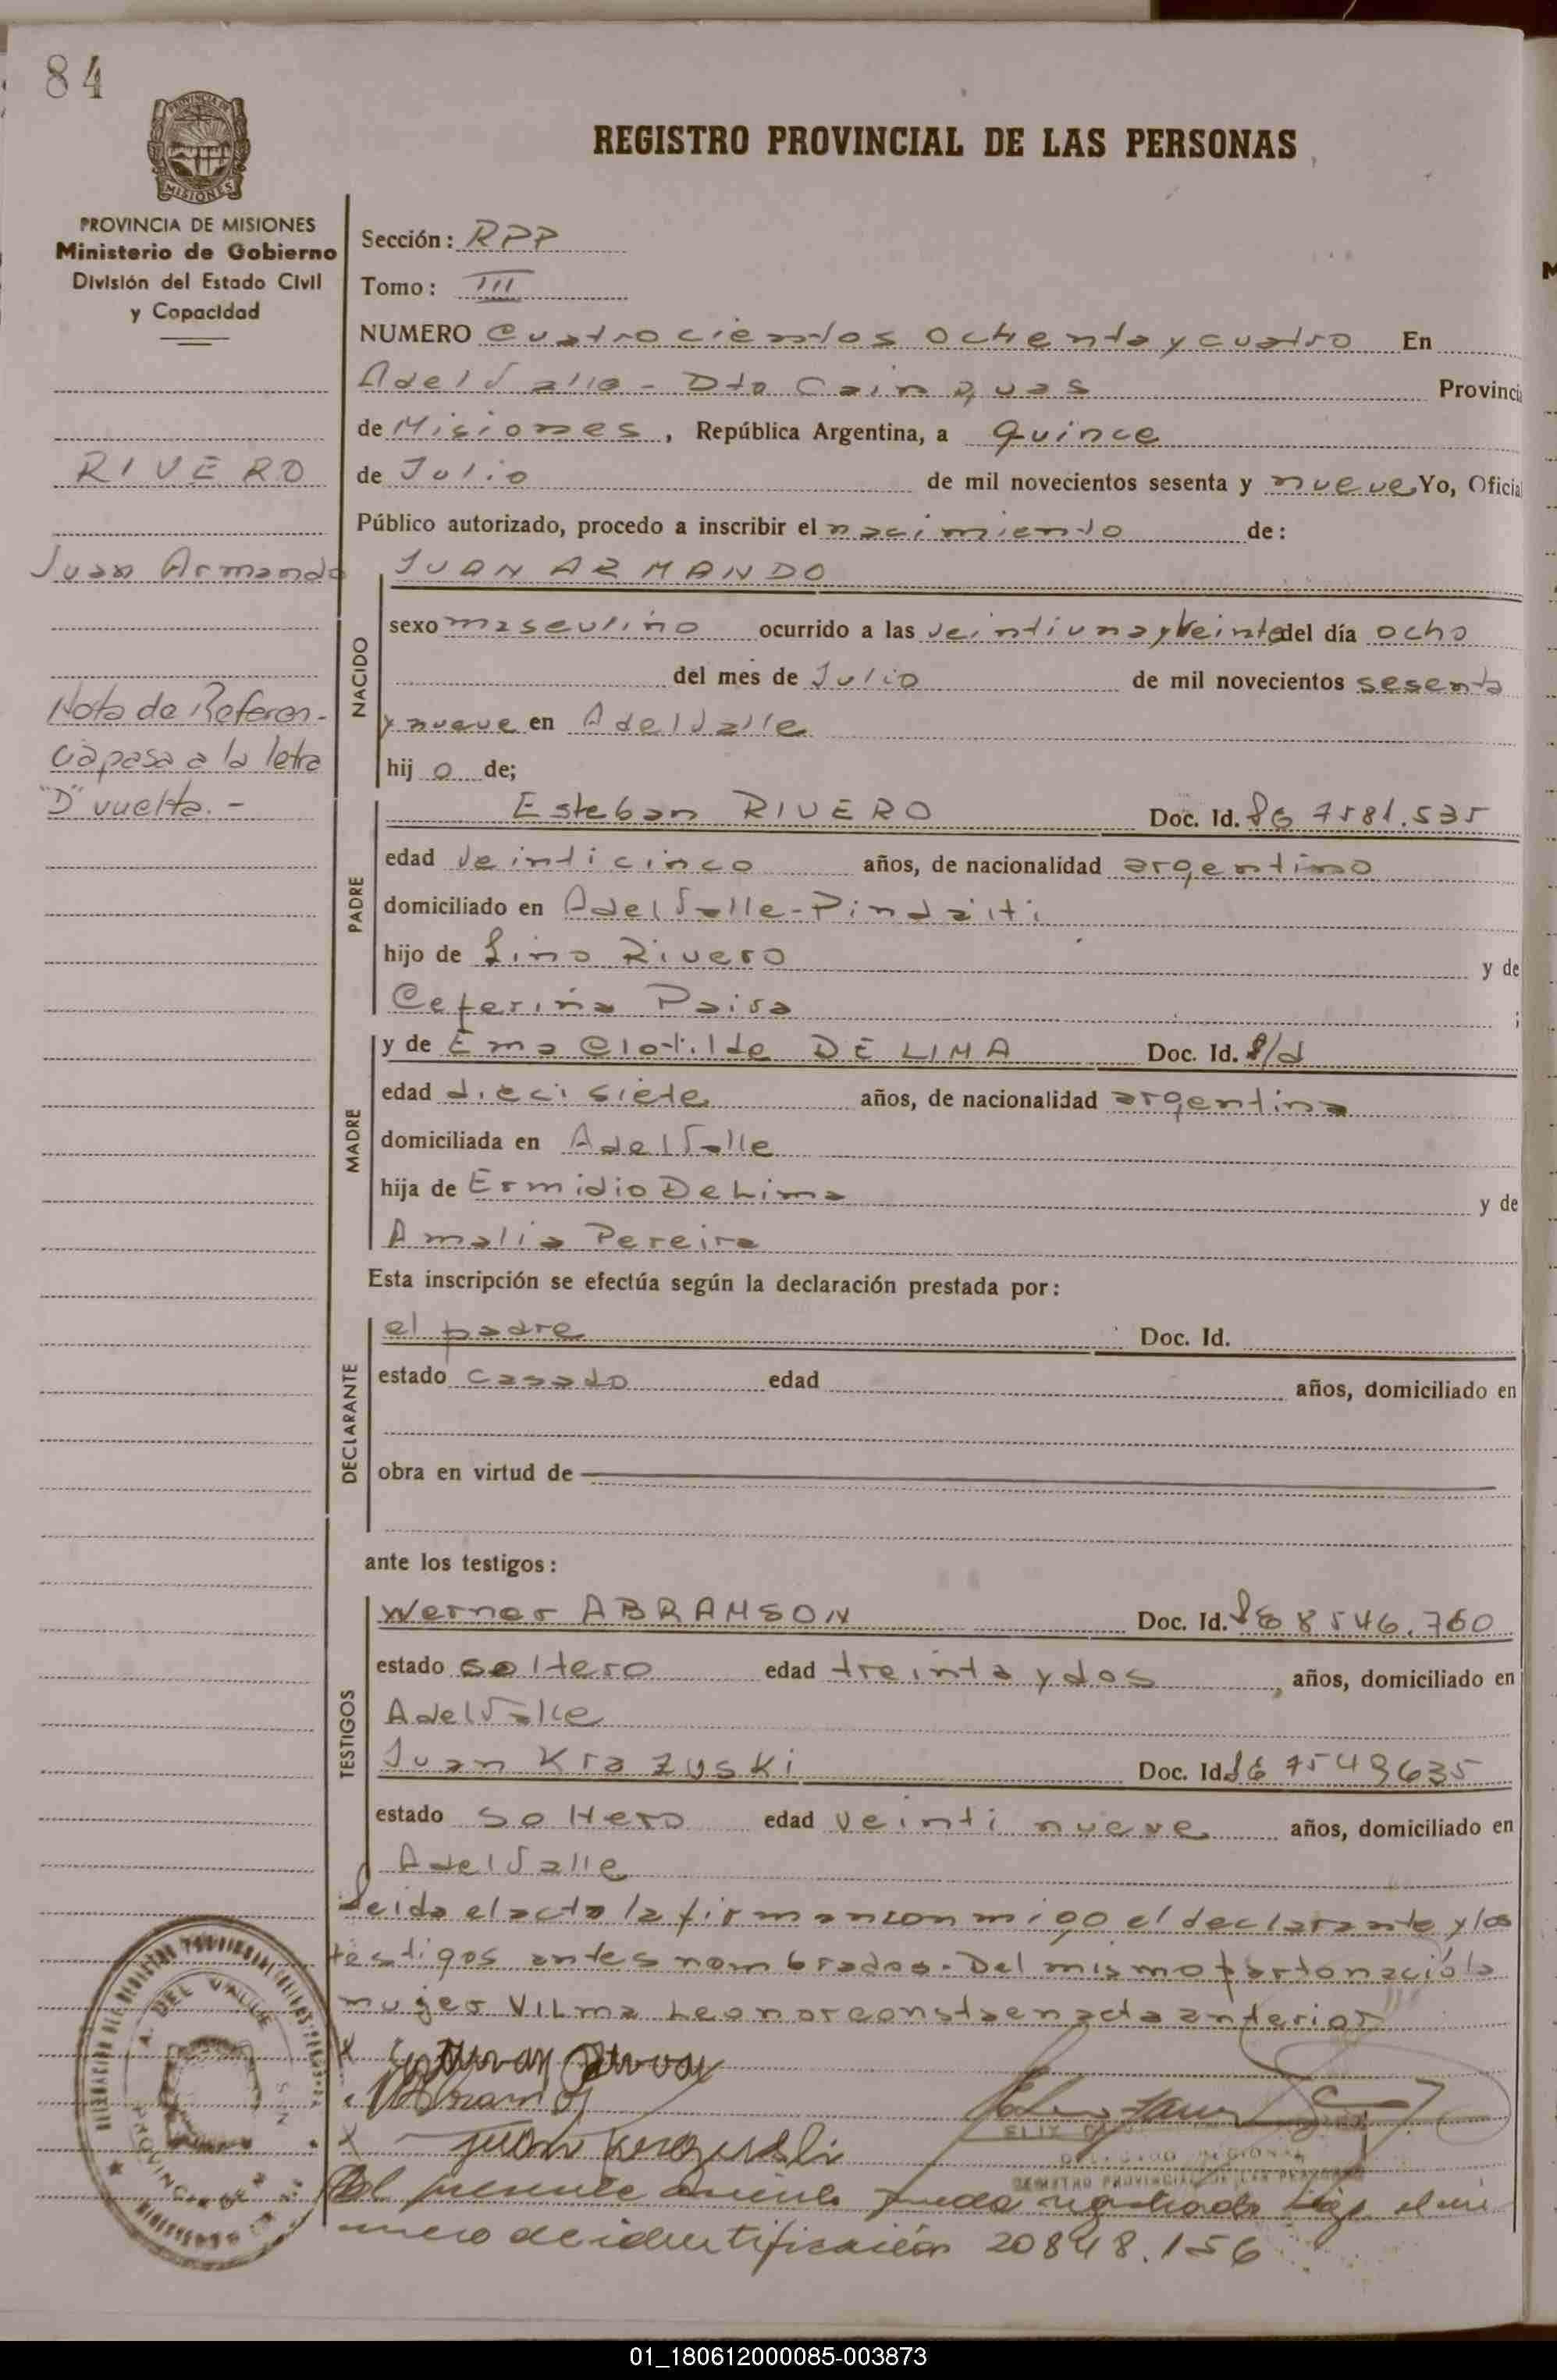 84
PROVINCIA DE MISIONES
Ministerio de Gobierno
División del Estado Civil
y Capacidad
RIVERO
Juan Armando
Nota de Referen-
cia pasa a la letra
"D" vuelta. -
REGISTRO PROVINCIAL DE LAS PERSONAS
Sección: RPP
Tomo: III
NUMERO Cuatrocientos ochenta y cuatro En
A del Valle - Dto Cainguas Provinci
de Misiones, República Argentina, a quince
de Julio de mil novecientos sesenta y nueve Yo, Oficial
Público autorizado, procedo a inscribir el nacimiento de:
NACIDO
JUAN ARMANDO
sexo masculino ocurrido a las veintiuna y veinte del día ocho
del mes de Julio de mil novecientos sesenta
y nueve en A del Valle
hij o de;
PADRE
Esteban RIVERO Doc. Id. 7581.535
edad veinticinco años, de nacionalidad argentino
domiciliado en A del Valle - Pindaiti
hijo de Lino Rivero y de
Ceferina Paiva ;
MADRE
y de Ema Clotilde DE LIMA Doc. Id. S/d
edad diecisiete años, de nacionalidad argentina
domiciliada en A del Valle
hija de Ermidio De Lima y de
Amalia Pereira
Esta inscripción se efectúa según la declaración prestada por:
DECLARANTE
el padre Doc. Id.
estado casado edad años, domiciliado en
obra en virtud de
ante los testigos:
TESTIGOS
Werner ABRAMSON Doc. Id. 8546.760
estado soltero edad treinta y dos, años, domiciliado en
A del Valle
Juan Krazuski Doc. Id 7549635
estado soltero edad veinti nueve años, domiciliado en
A del Valle
Leida el acta la firman conmigo el declarante y los
testigos antes nombrados. Del mismo parto nació la
mujer VILMA Leonor consta en acta anterior
DELEGADO REGIONAL
REGISTRO PROVINCIAL DE LAS PERSONAS
A. DEL VALLE
El presente asiento queda registrado bajo el nú
mero de identificación 20848.156
01_180612000085-003873